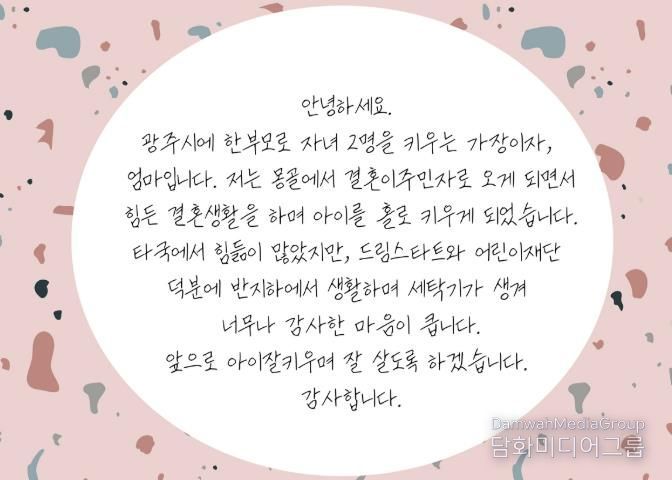 안녕하세요.
광주시에 한부모로 자녀 2명을 키우는 가장이자,
엄마입니다. 저는 몽골에서 결혼이주민자로 오게 되면서
힘든 결혼생활을 하며 아이를 홀로 키우게 되었습니다.
타국에서 힘듦이 많았지만, 드림스타트와 어린이재단
덕분에 반지하에서 생활하며 세탁기가 생겨
너무나 감사한 마음이 큽니다.
앞으로 아이잘키우며 잘 살도록 하겠습니다.
감사합니다.
DamwahMediaGroup
담화미디어그룹